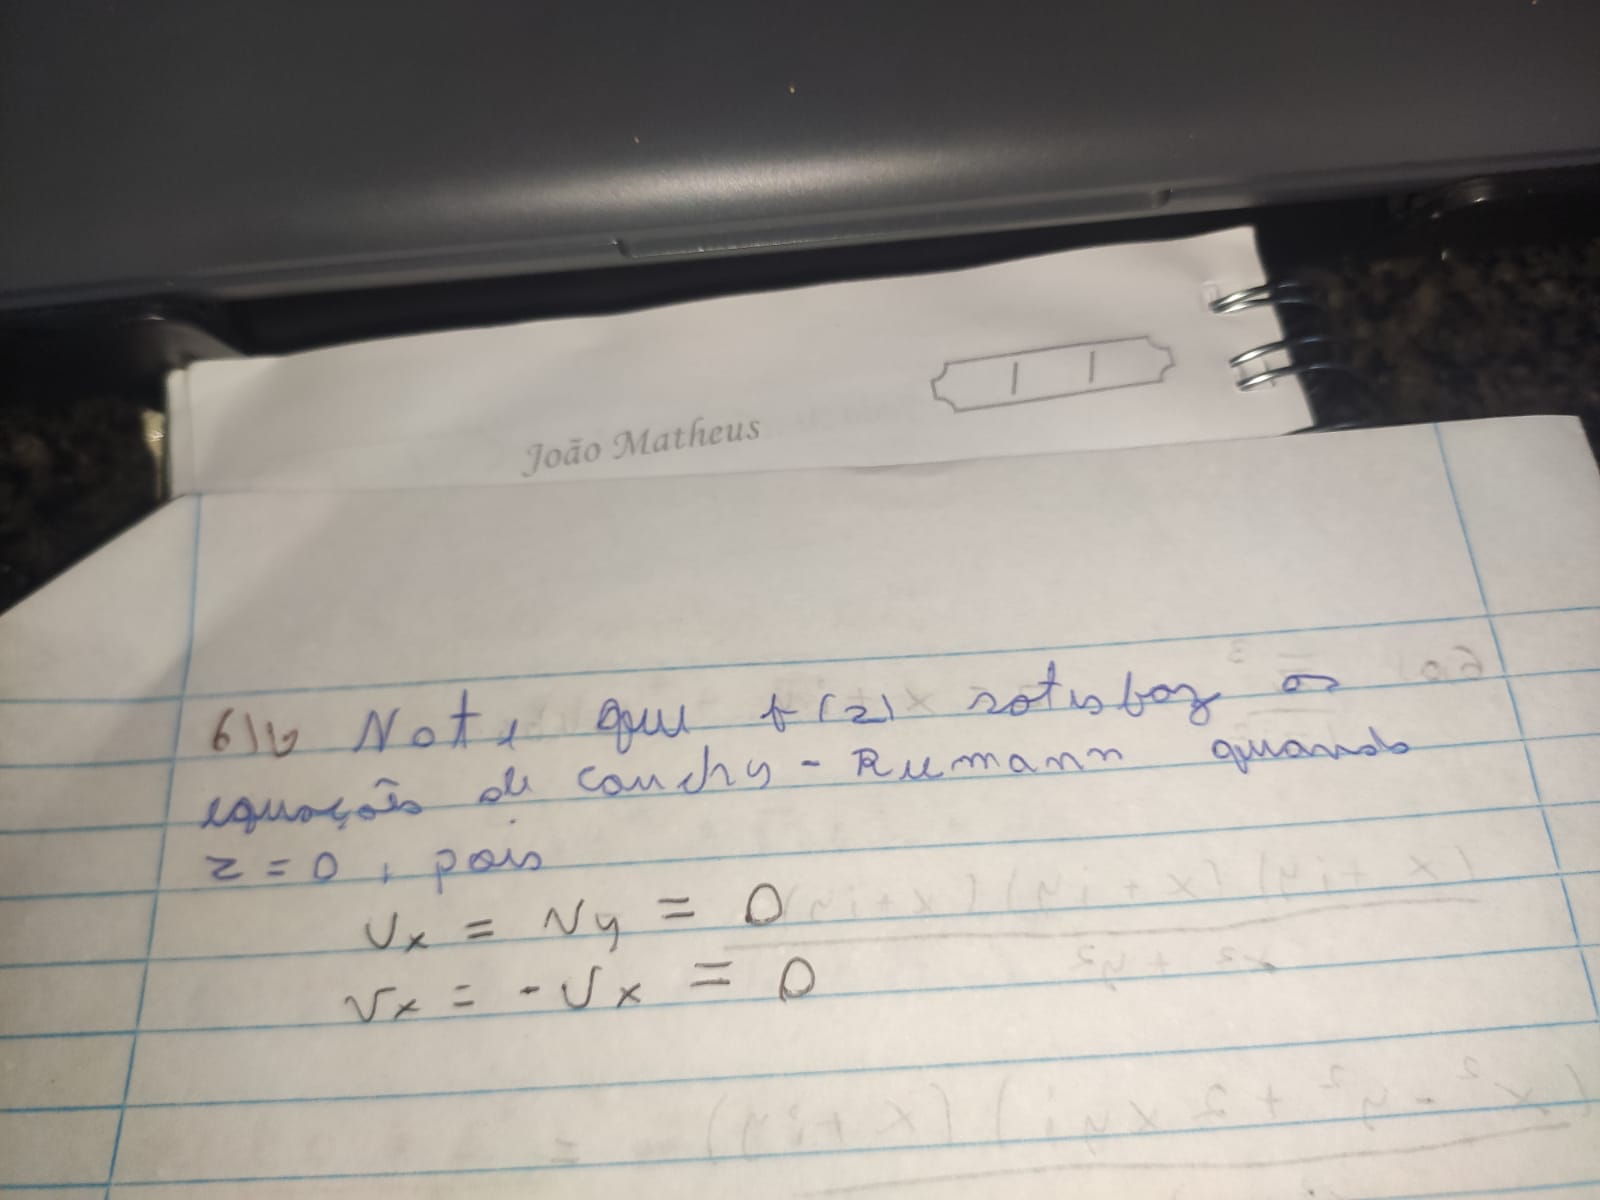 João Matheus
6)b Note que f(z) satisfaz as
equações de Cauchy-Riemann quando
z = 0, pois
Ux = Vy = 0
Vx = -Ux = 0